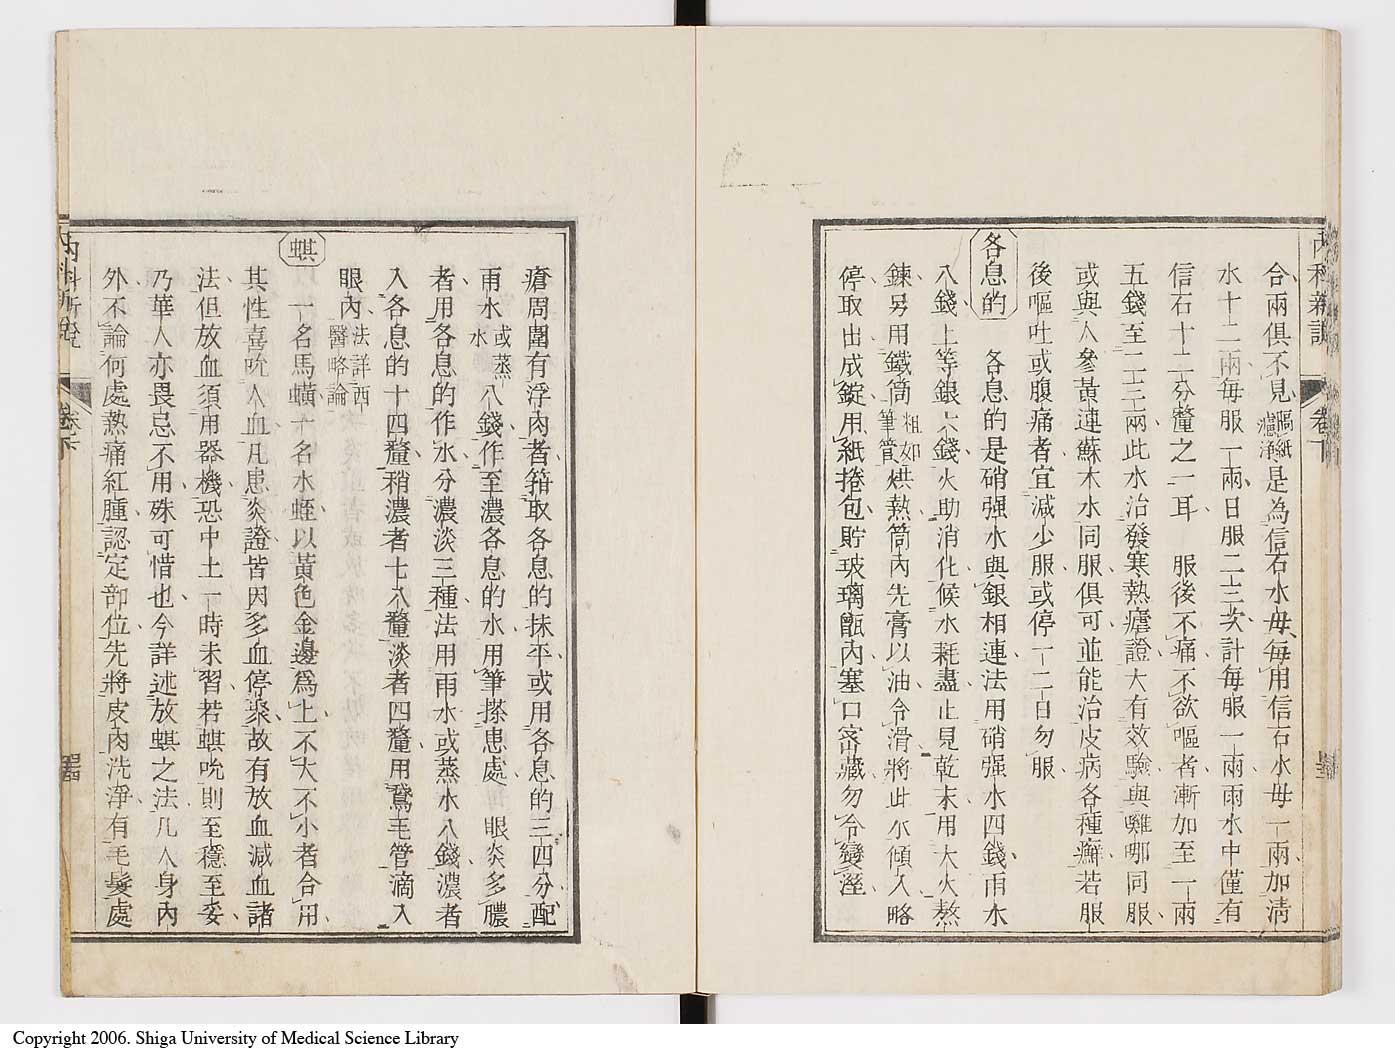 內科新說 卷下
合兩俱不見漚紙濾淨是為信石水毋每用信石水毋一兩加清
水十二兩每服一兩日服二三次計每服一兩雨水中僅有
信石十二分釐之一耳 服後不痛不欲嘔者漸加至一兩
五錢至二三兩此水治發寒熱瘧證大有效驗與嘰哪同服
或與人參黃連蘇木水同服俱可並能治皮病各種癬若服
後嘔吐或腹痛者宜減少服或停一二日勿服
各息的 各息的是硝强水與銀相連法用硝强水四錢雨水
八錢上等銀六錢火助消化候水耗盡止見乾末用大火熬
鍊另用鐵筒粗如筆管烘熱筒內先膏以油令滑將此水傾入略
停取出成錠用紙捲包貯玻璃甑內塞口密藏勿令變溼
瘡周圍有浮肉者箝取各息的抹平或用各息的三四分配
雨水或蒸水八錢作至濃各息的水用筆搽患處 眼炎多膿
者用各息的作水分濃淡三種法用雨水或蒸水八錢濃者
入各息的十四釐稍濃者七八釐淡者四釐用鵞毛管滴入
眼內法詳西醫略論
蜞
一名馬蟥一名水蛭以黃色金邊爲上不大不小者合用
其性喜吮人血凡患炎證皆因多血停聚故有放血減血諸
法但放血須用器機恐中土一時未習若蜞吮則至穩至妥
乃華人亦畏忌不用殊可惜也今詳述放蜞之法凡人身內
外不論何處熱痛紅腫認定部位先將皮肉洗淨有毛髮處
內科新說 卷下